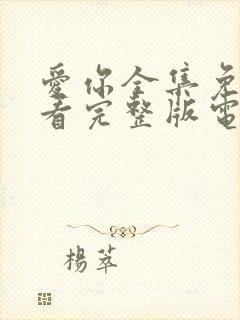 愛你全集免
看完整版電
楊萃